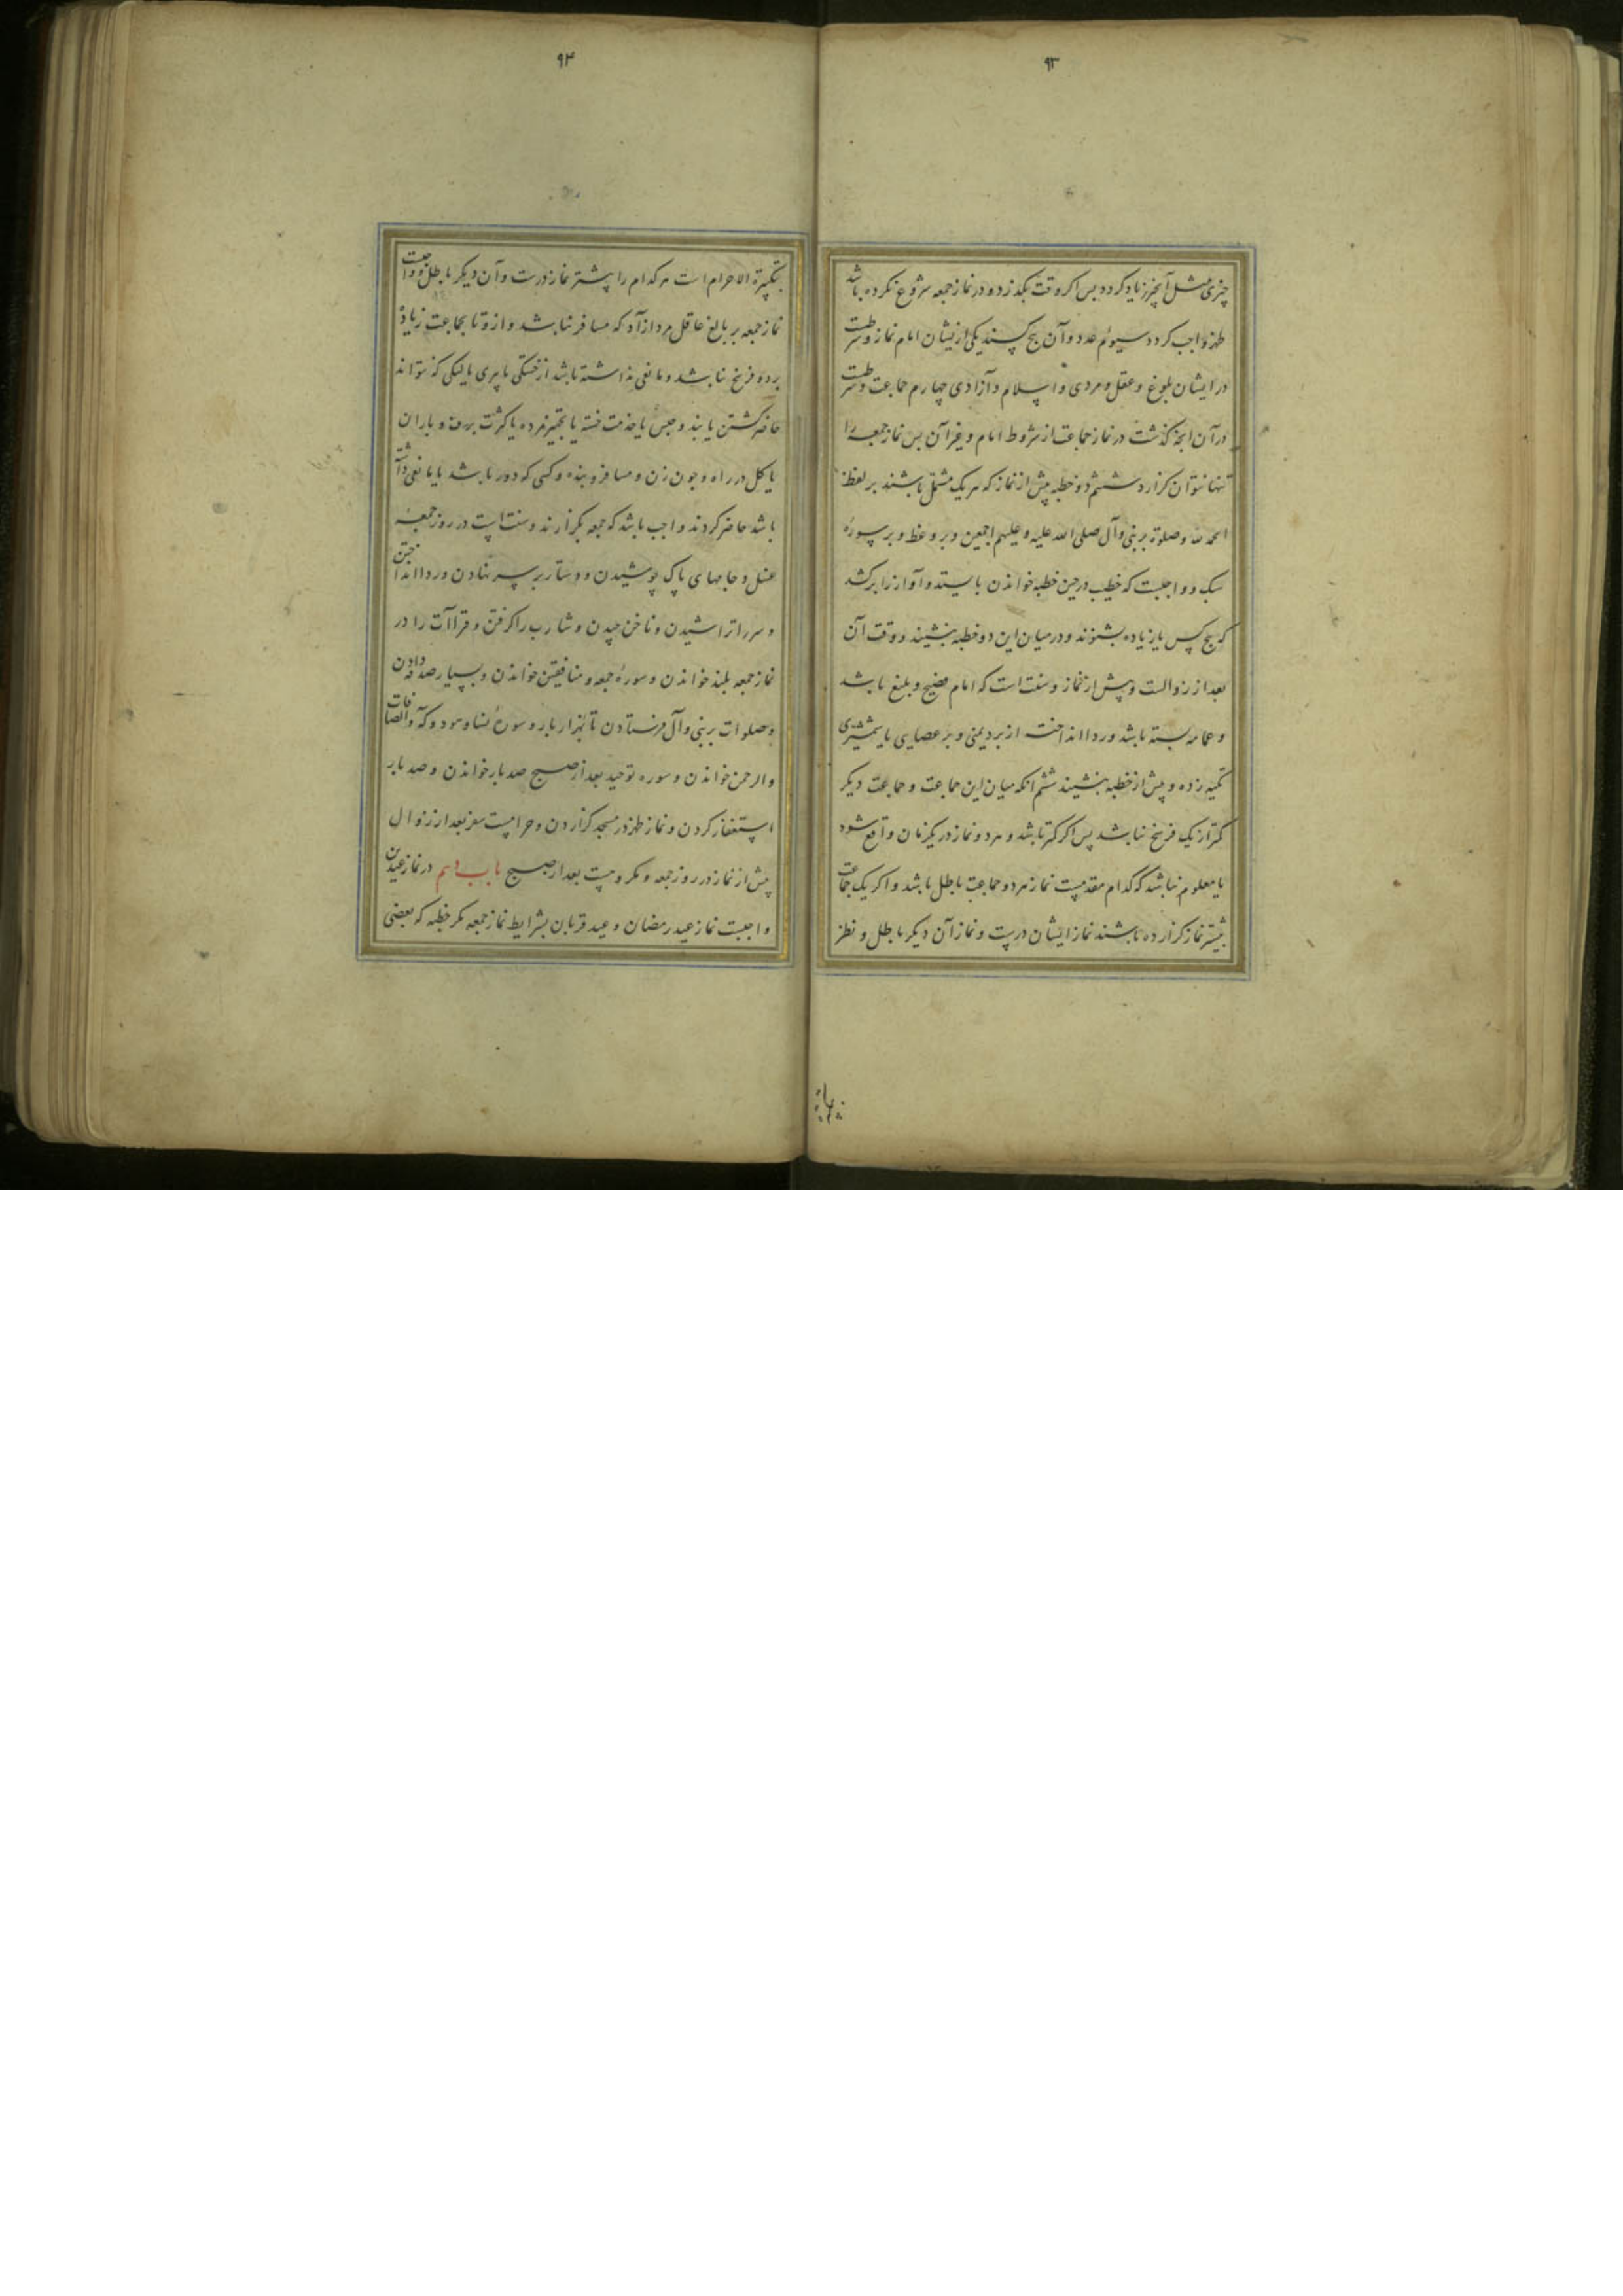 ۹۳
چیزی مثل آنچیز زیاد کردد پس اکر وقت بکذرد و در نماز جمعه شروع نکرده باشد
ظهر واجب کردد سیوم عدد و آن پنج کسند یکی ازیشان امام نماز و شرطست
در ایشان بلوغ و عقل و مردی و اسلام و آزادی چهارم جماعت و شرطست
در آن آنچه کذشت در نماز جماعت از شروط امام و غیر آن پس نماز جمعه را
تنها نتوان کزارد ششم دو خطبه پیش از نماز که هر یک مشتمل باشند بر لفظ
الحمد لله و صلوة بر نبی و آل صلی الله علیه و علیهم اجمعین و بر وعظ و بر سورهٔ
سبک و واجبست که خطیب در حین خطبه خواندن بایستد و آواز را برکشد
که پنج کس یا زیاده بشنوند و در میان این دو خطبه بنشیند و وقت آن
بعد از زوالست و پیش از نماز و سنت است که امام فصیح و بلیغ باشد
و عمامه بسته باشد و ردا انداخته از برد یمنی و بر عصایی یا شمشیری
تکیه زده و پیش از خطبه بنشیند ششم آنکه میان این جماعت و جماعت دیکر
کمتر از یک فرسخ نباشد پس اکر کمتر باشد و هر دو نماز در یکزمان واقع شود
یا معلوم نباشد که کدام مقدمست نماز هر دو جماعت باطل باشد و اکر یک جماعت
بیشتر نماز کزارده باشند نماز ایشان درست و نماز آن دیکر باطل و نظر
۹۴
بتکبیرة الاحرام است هر کدام را پیشتر نماز درست و آن دیکر باطل و واجبست
نماز جمعه بر بالغ عاقل مرد آزاد که مسافر نباشد و ازو تا بجماعت زیاده
بر دو فرسخ نباشد و مانعی نداشته باشد از خستکی یا پیری یا لنکی که نتواند
حاضر کشتن یا بند و حبس یا خدمت خسته یا تجهیز مرده یا کثرت برف و باران
یا کل در راه و چون زن و مسافر و بنده و کسی که دور باشد یا مانعی داشته
باشد حاضر کردند واجب باشد که جمعه بکزارند و سنت است در روز جمعه
غسل و جامهای پاک پوشیدن و دستار بر سر نهادن و ردا انداختن
و سر را تراشیدن و ناخن چیدن و شارب را کرفتن و قراآت را در
نماز جمعه بلند خواندن و سورهٔ جمعه و منافقین خواندن و بسیار صدقه دادن
و صلوات بر نبی و آل فرستادن تا هزار بار و سورهٔ نسا و هود و کهف و الصافات
و الرحمن خواندن و سوره توحید بعد از صبح صد بار خواندن و صد بار
استغفار کردن و نماز ظهر در مسجد کزاردن و حرامست سفر بعد از زوال
پیش از نماز در روز جمعه و مکروهست بعد از صبح باب دهم در نماز عیدین
واجبست نماز عید رمضان و عید قربان بشرایط نماز جمعه مکر خطبه که بعضی